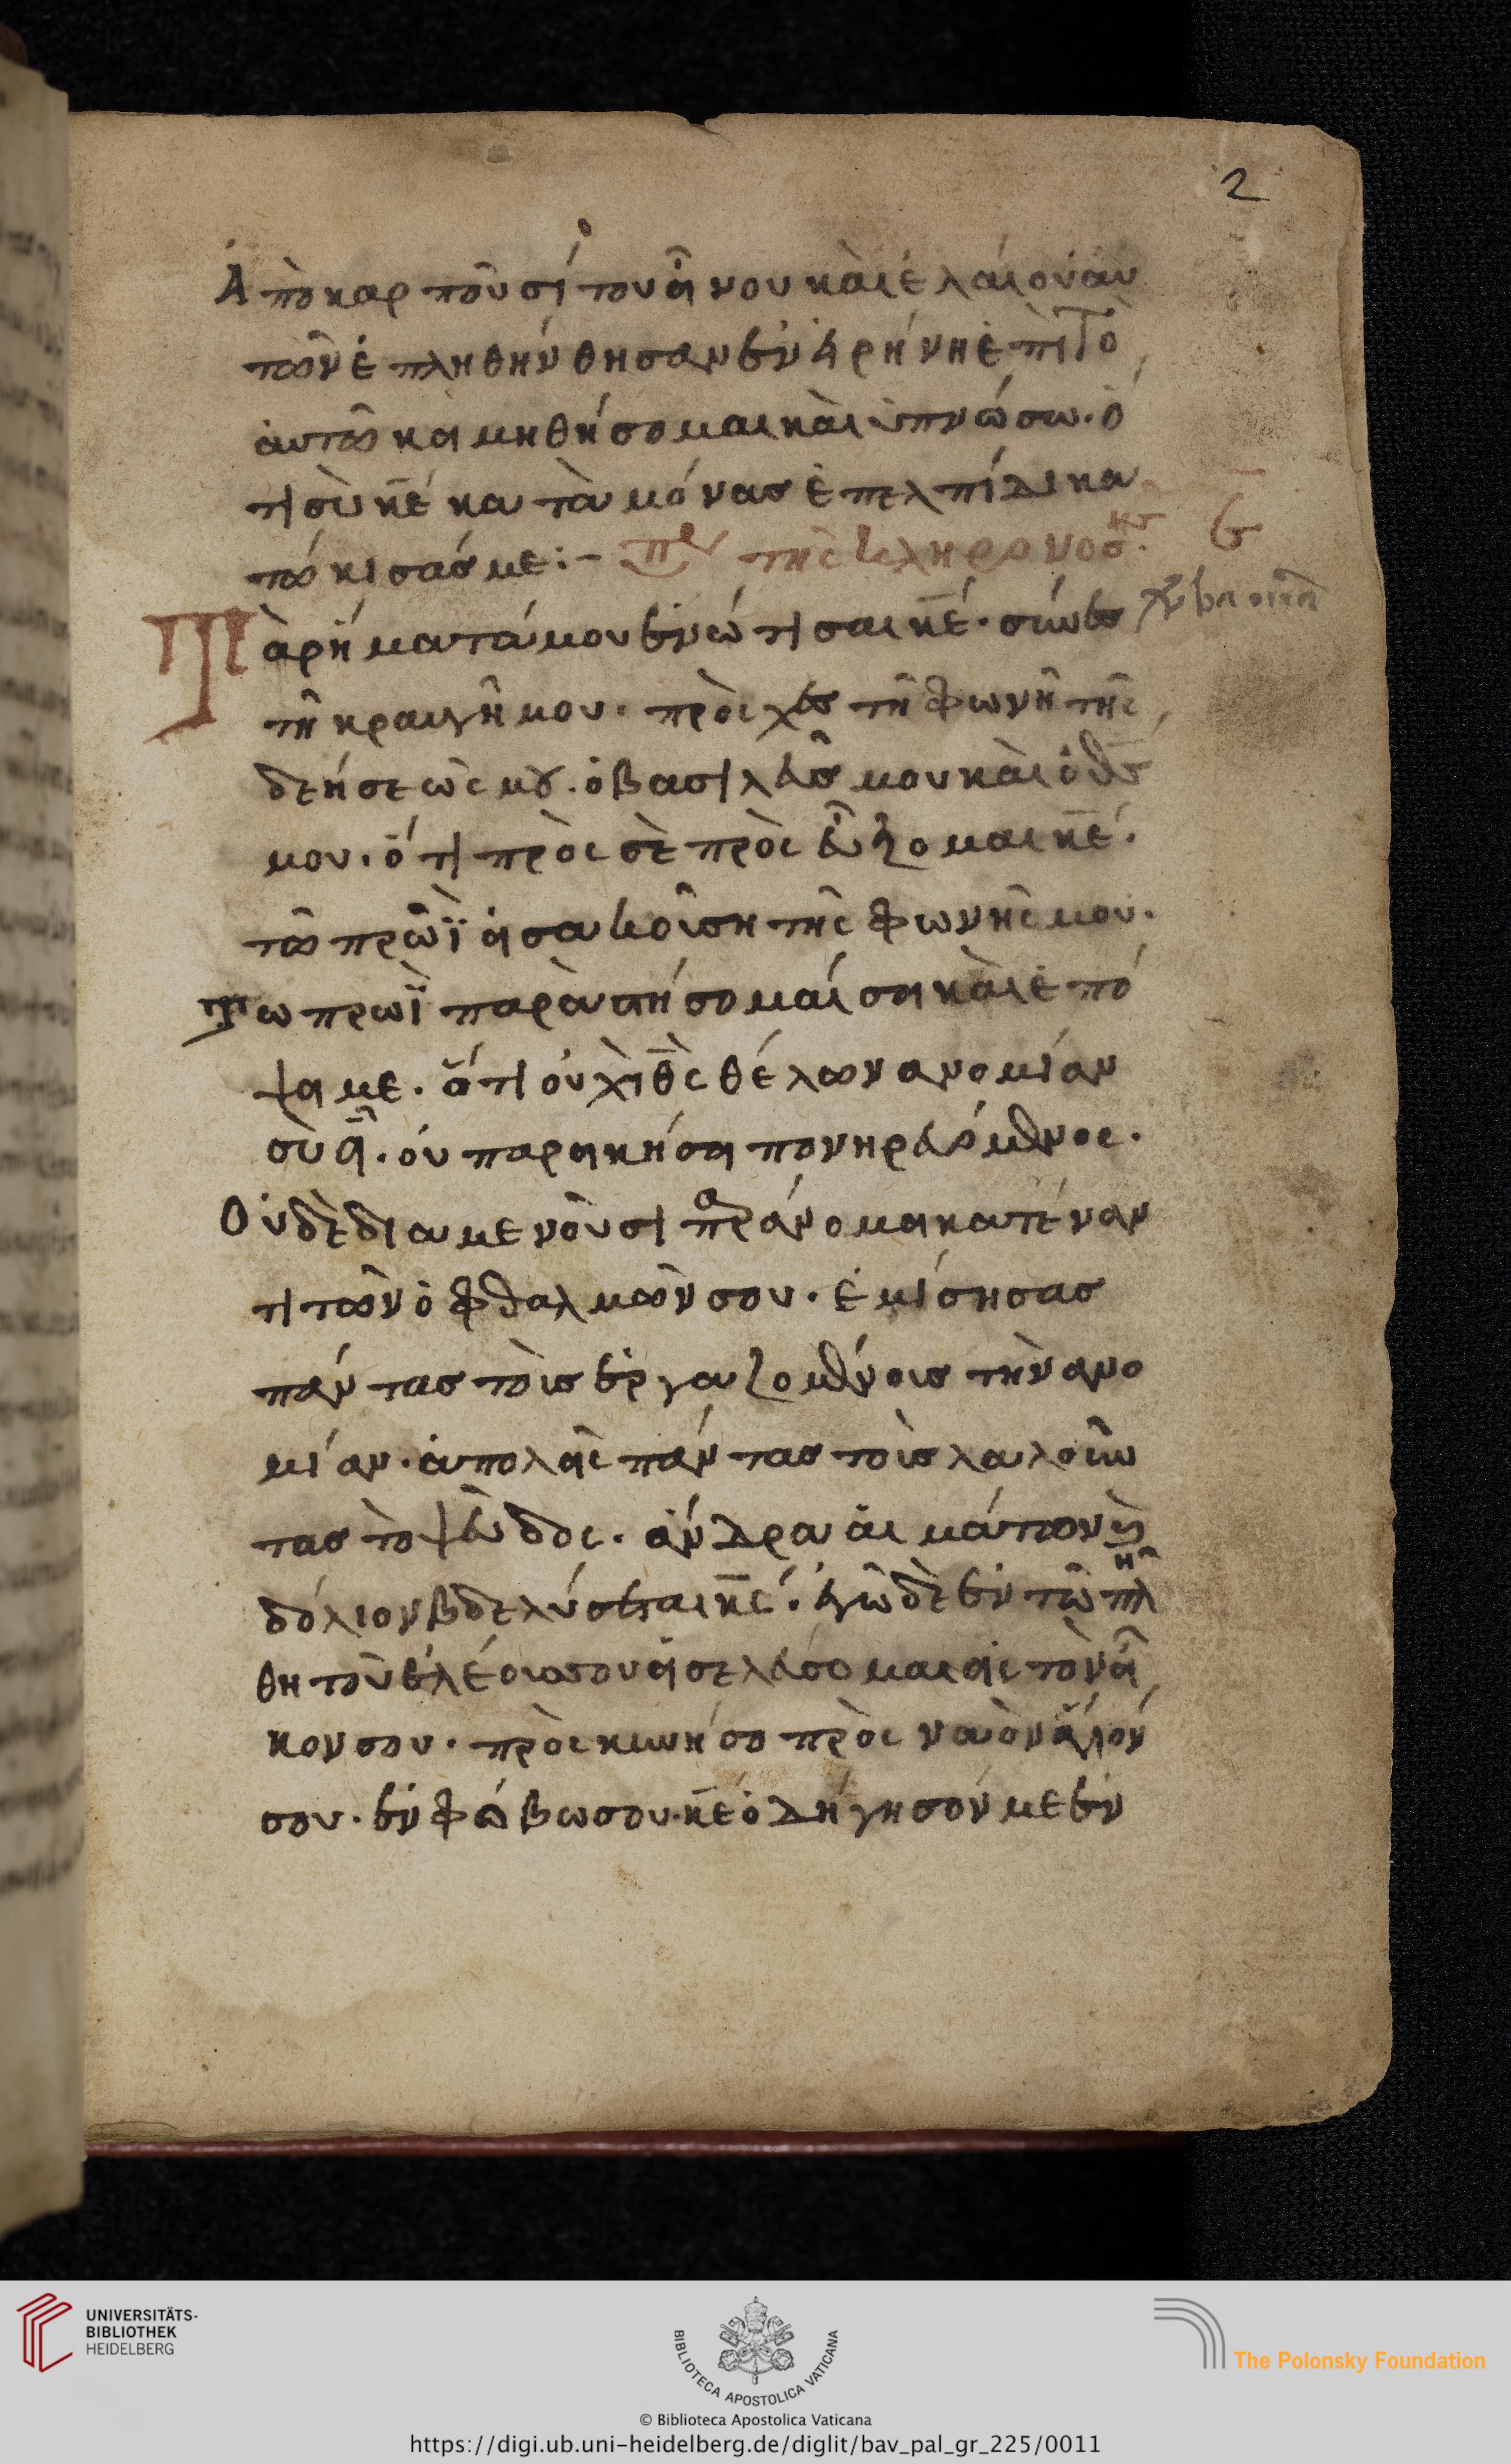 2
Ἀπὸ καρποῦ σίτου οἴνου καὶ ἐλαίου ἀυ
τῶν ἐπληθήνθησαν ἐν εἰρήνη ἐπιτὸ
ἀυτῶ κοιμηθήσομαι καὶ ὑπνώσω. ὅ
τι σὺ κε̅ κατὰ μόνας ἐπ ελπίδι κα
τώκισάς με:-
ϛ
Τὰ ρήματά μου ἐνώτισαι κε̅. σύνες
τῆ κραυγῆ μου. πρὸςχες τῆ φωνῆ τῆς
δεήσεώς μου. ὁ βασιλεῦς μου καὶ ὁ θς̅
μου. ὅτι πρὸς σὲ πρὸς εὔξομαι κε̅.
τῶ πρωῒ εἰσακούση τῆς φωνῆς μου.
Τω πρωῒ παραστήσομαί σοι καὶ ἐπό
ψει με. ὅτι οὐχὶ θς̅ θέλων ανομίαν
σὺ εἶ. οὐ παροικήσει πονηρευόμενος.
Οὐδὲ διαμενοῦσι παράνομοι κατέναν
τι τῶν ὀφθαλμῶν σου. ἐμίσησας
πάντας τοὺς ἐργαζομένους τὴν ανο
μίαν. ἀπολεῖς πάντας τοὺς λαλοῦν
τας τὸ ψεῦδος. ἄνδρα αἱμάτων καὶ
δόλιον βδελύσεται κς̅. ἐγῶ δὲ ἐν τῶ πλή
θη τοῦ ἐλέους σου εἰσελεύσομαι εἰς τὸν οἶ
κον σου. πρὸς κυνήσο πρὸς ναὸν ἅγιόν
σου. ἐν φόβω σου. κε̅ ὁδήγησόν με ἐν
UNIVERSITÄTS-
BIBLIOTHEK
HEIDELBERG
BIBLIOTECA APOSTOLICA VATICANA
The Polonsky Foundation
© Biblioteca Apostolica Vaticana
https://digi.ub.uni-heidelberg.de/diglit/bav_pal_gr_225/0011